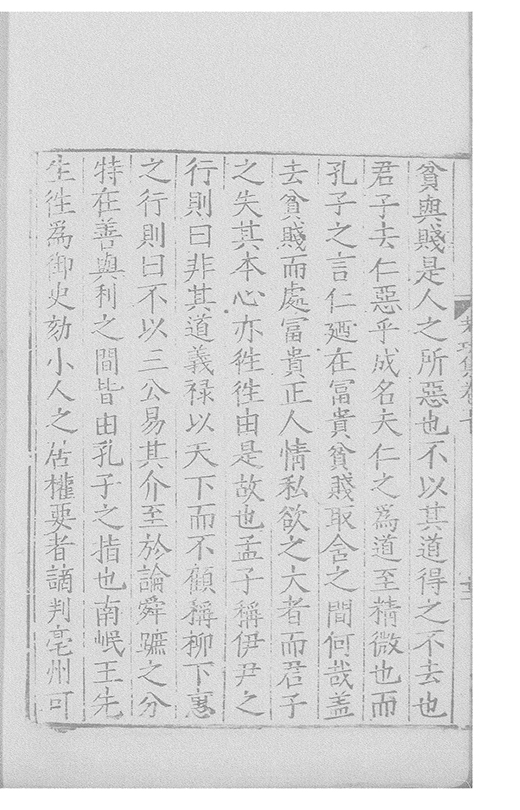 貧與賤是人之所惡也不以其道得之不去也
君子去仁惡乎成名夫仁之為道至精微也而
孔子之言仁廼在富貴貧賤取舍之間何哉盖
去貧賤而處富貴正人情私欲之大者而君子
之失其本心亦徃徃由是故也孟子稱伊尹之
行則曰非其道義禄以天下而不顧稱柳下惠
之行則曰不以三公易其介至於論舜蹠之分
特在善與利之間皆由孔子之指也南岷王先
生徃為御史劾小人之怙權要者謫判亳州可